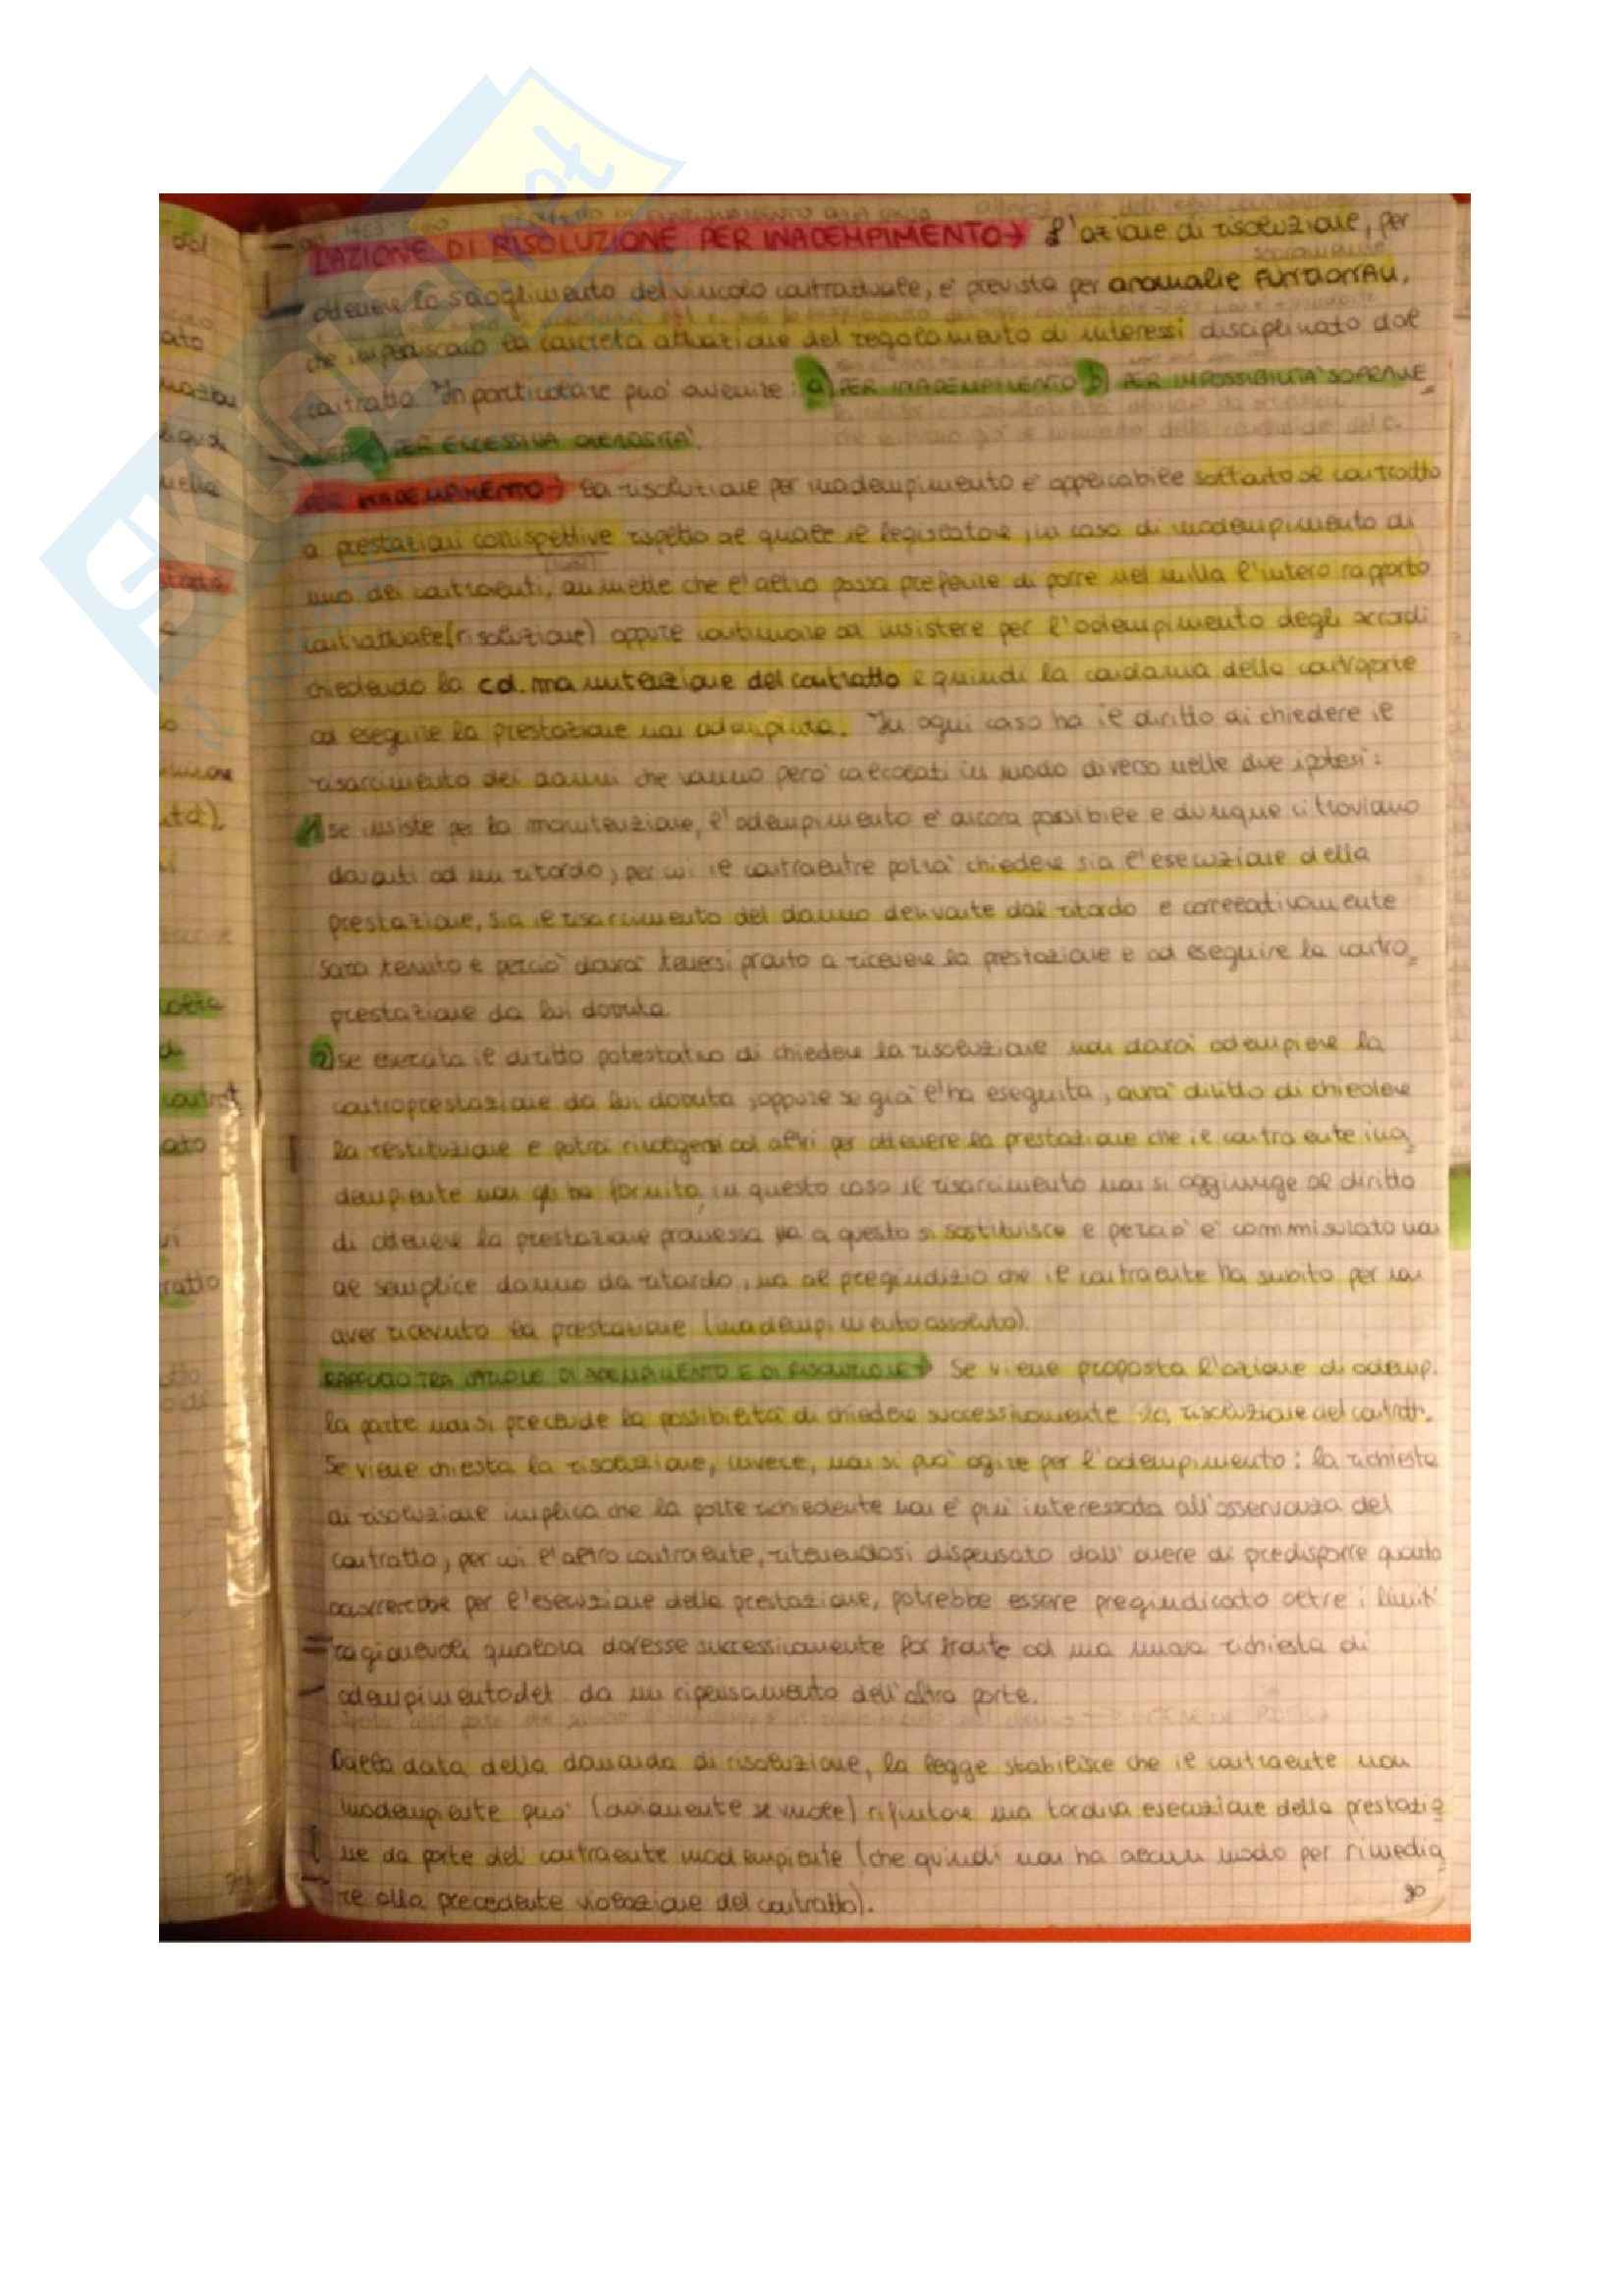 L'AZIONE DI RISOLUZIONE PER INADEMPIMENTO → L'azione di risoluzione, per
ottenere lo scioglimento del vincolo contrattuale, e' prevista per anomalie FUNZIONALI,
che impediscono la concreta attuazione del regolamento di interessi disciplinato dal
contratto. In particolare puo' avvenire: a) PER INADEMPIMENTO b) PER IMPOSSIBILITA' SOPRAVVE=
PER ECCESSIVA ONEROSITA'.
PER INADEMPIMENTO → La risoluzione per inadempimento e' applicabile soltanto al contratto
a prestazioni corrispettive rispetto al quale il legislatore, in caso di inadempimento di
uno dei contraenti, ammette che l'altro possa preferire di porre nel nulla l'intero rapporto
contrattuale (risoluzione) oppure continuare ad insistere per l'adempimento degli accordi
chiedendo la cd. manutenzione del contratto e quindi la condanna della controparte
ad eseguire la prestazione non adempiuta. In ogni caso ha il diritto di chiedere il
risarcimento dei danni che vanno pero' calcolati in modo diverso nelle due ipotesi:
1) se insiste per la manutenzione, l'adempimento e' ancora possibile e dunque ci troviamo
davanti ad un ritardo, per cui il contraente potra' chiedere sia l'esecuzione della
prestazione, sia il risarcimento del danno derivante dal ritardo e correlativamente
sara tenuto e percio' dovra' tenersi pronto a ricevere la prestazione e ad eseguire la contro=
prestazione da lui dovuta.
2) se esercita il diritto potestativo di chiedere la risoluzione non dovra' adempiere la
controprestazione da lui dovuta, oppure se gia' l'ha eseguita, avra' diritto di chiedere
la restituzione e potra rivolgersi ad altri per ottenere la prestazione che il contraente ina=
dempiente non gli ha fornito, in questo caso il risarcimento non si aggiunge al diritto
di ottenere la prestazione promessa ma a questo si sostituisce e percio' e' commisurato non
al semplice danno da ritardo, ma al pregiudizio che il contraente ha subito per non
aver ricevuto la prestazione (inadempimento assoluto).
RAPPORTO TRA AZIONE DI ADEMPIMENTO E DI RISOLUZIONE → Se viene proposta l'azione di ademp.
la parte non si preclude la possibilita' di chiedere successivamente la risoluzione del contratt.
Se viene chiesta la risoluzione, invece, non si puo' agire per l'adempimento: la richiesta
di risoluzione implica che la parte richiedente non e' piu' interessata all'osservanza del
contratto, per cui l'altro contraente, ritenendosi dispensato dall'onere di predisporre quanto
occorrerebbe per l'esecuzione della prestazione, potrebbe essere pregiudicato oltre i limiti
ragionevoli qualora dovesse successivamente far fronte ad una nuova richiesta di
adempimento det. da un ripensamento dell'altra parte.
Dalla data della domanda di risoluzione, la legge stabilisce che il contraente non
inadempiente puo' (ovviamente se vuole) rifiutare una tardiva esecuzione della prestazio=
ne da parte del contraente inadempiente (che quindi non ha alcun modo per rimedia=
re alla precedente violazione del contratto).